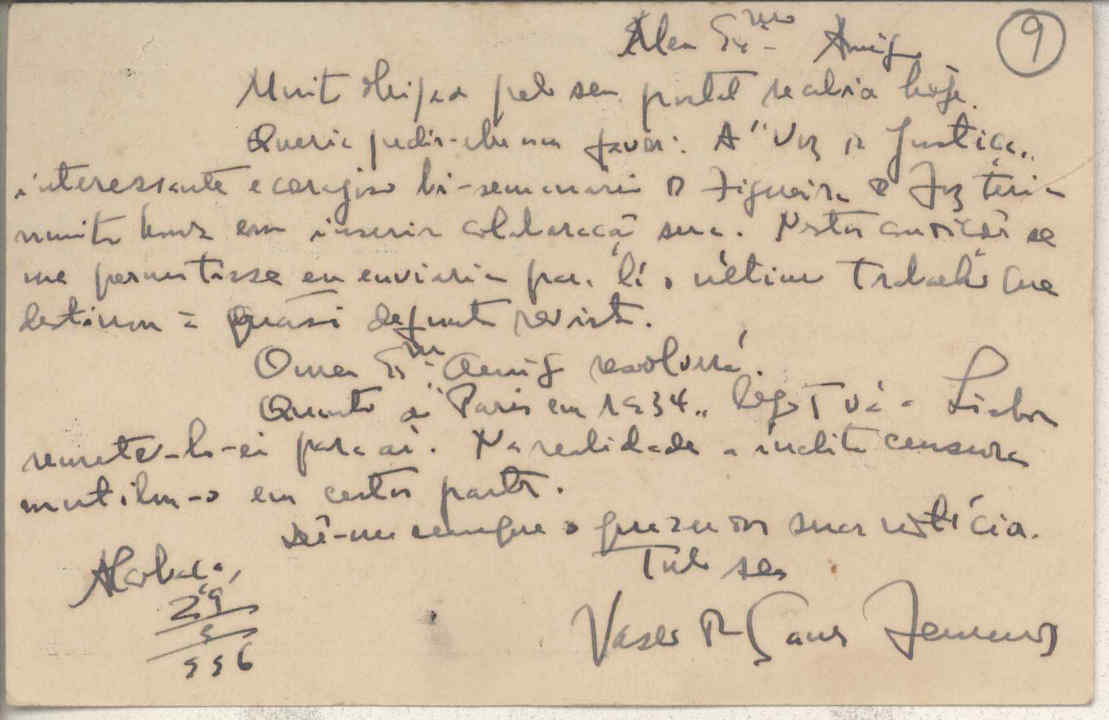 Meu Exmo Amigo
9
Muito obrigado pelo seu postal recebido hoje.
Queria pedir-lhe um favor: A "Voz da Justiça"
interessante e corajoso bi-semanario da Figueira da Foz teria
muita honra em inserir colaboração sua. Nestas condições se
me permitisse eu enviaria para lá o último trabalho que
destinou à quási defunta revista.
O meu Exmo Amigo resolverá.
Quanto a "Paris em 1934" logo q vá a Lisboa
remeter-lo-ei para aí. Na realidade a inédita censura
mutilou-o em certas partes.
Dê-me sempre o prazer das suas notícias.
Todo seu
Vasco da Gama Fernandes
Alcobaça,
29
5
936